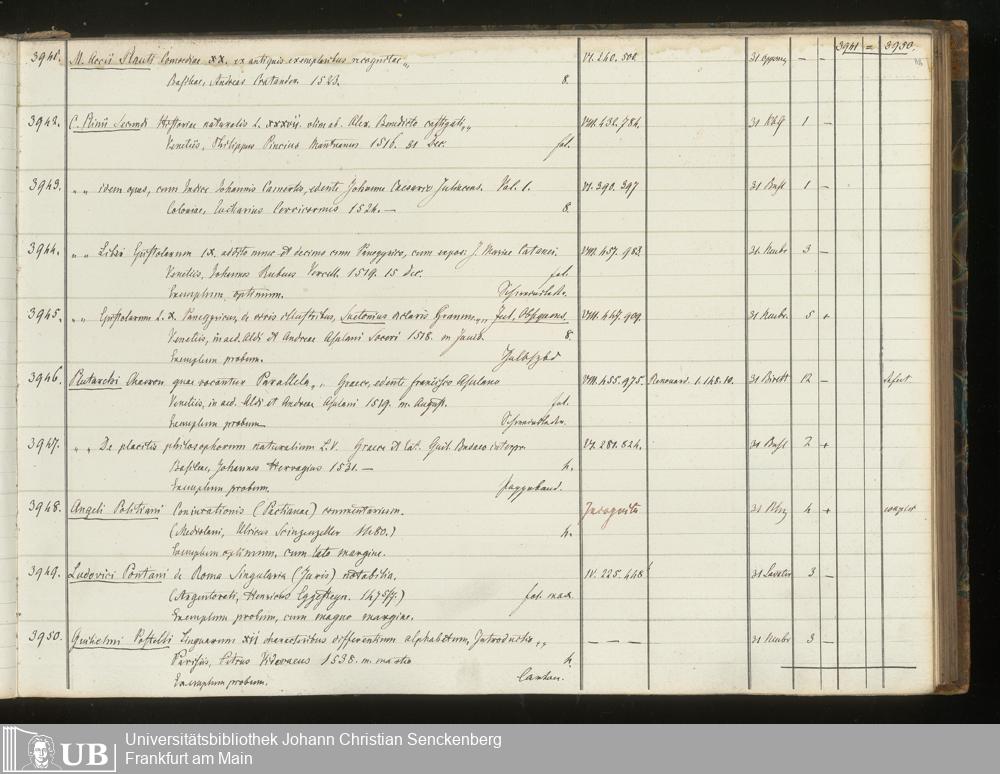 3941 = 3950.
3941. M. Accii Plauti Comoediae XX. ex antiquis exemplaribus recognitae „ VI. 240. 508. 31 — —
Basileae, Andreas Cratander 1523. 8.
3942. C. Plinii Secundi Historiae naturalis L. XXXVII. olim ab Alex. Benedicto castigati „ VIII. 432. 784. 31 1 —
Venetiis, Philippus Pincius Mantuanus 1516. 31 Dec. fol.
3943. „ „ idem opus, cum Indice Johannis Camertis, edente Johanne Caesario Juliacens. Vol. 1. VI. 390. 397 31 Basl 1 —
Coloniae, Eucharius Cervicornus 1524. — 8.
3944. „ „ Libri Epistolarum IX. addito nunc et decimo cum Panegyrico, cum expos. J. Mariae Catanei. VIII. 457. 983. 31 3 —
Venetiis, Johannes Rubeus Vercell. 1519. 15 Dec. fol.
Exemplum optimum. Schweinsleder.
3945. „ „ Epistolarum L. X. Panegyricus, de viris illustribus, Suetonius de claris Gramm. „ Jul. Obsequens. VIII. 447. 909. 31 5 +
Venetiis, in aed. Aldi et Andreae Asulani Soceri 1518. m Junio. 8.
Exemplum probum.
3946. Plutarchi Chaeron. quae vocantur Parallela „ Graece, edente Francisco Asulano VIII. 455. 975. Renouard. 1. 148. 10. 31 12 — defect.
Venetiis, in aed. Aldi et Andreae Asulani 1519. m. August. fol.
Exemplum probum. Schweinsleder.
3947. „ „ De placitis philosophorum naturalium L. V. Graece et Lat. Guil. Budaeo interpr. VI. 281. 824. 31 Basl 2 +
Basileae, Johannes Hervagius 1531. — 4.
Exemplum probum. Pappband.
3948. Angeli Politiani Coniurationis (Pactianae) commentarium. Incognita 31 4 +
(Mediolani, Ulricus Scinzenzeller 1480.) 4.
Exemplum optimum, cum lato margine.
3949. Ludovici Pontani de Roma Singularia (Juris) notabilia. IV. 225. 448 31 3 —
(Argentorati, Henricus Eggesteyn. 1475/7.) fol. max.
Exemplum probum, cum magno margine.
3950. Guilielmi Postelli Linguarum XII characteribus differentium alphabetum, Introductio „ — — — 31 3 —
Parisiis, Petrus Vidovaeus 1538. m. martio 4.
Exemplum probum. Carton.
UB
Universitätsbibliothek Johann Christian Senckenberg
Frankfurt am Main